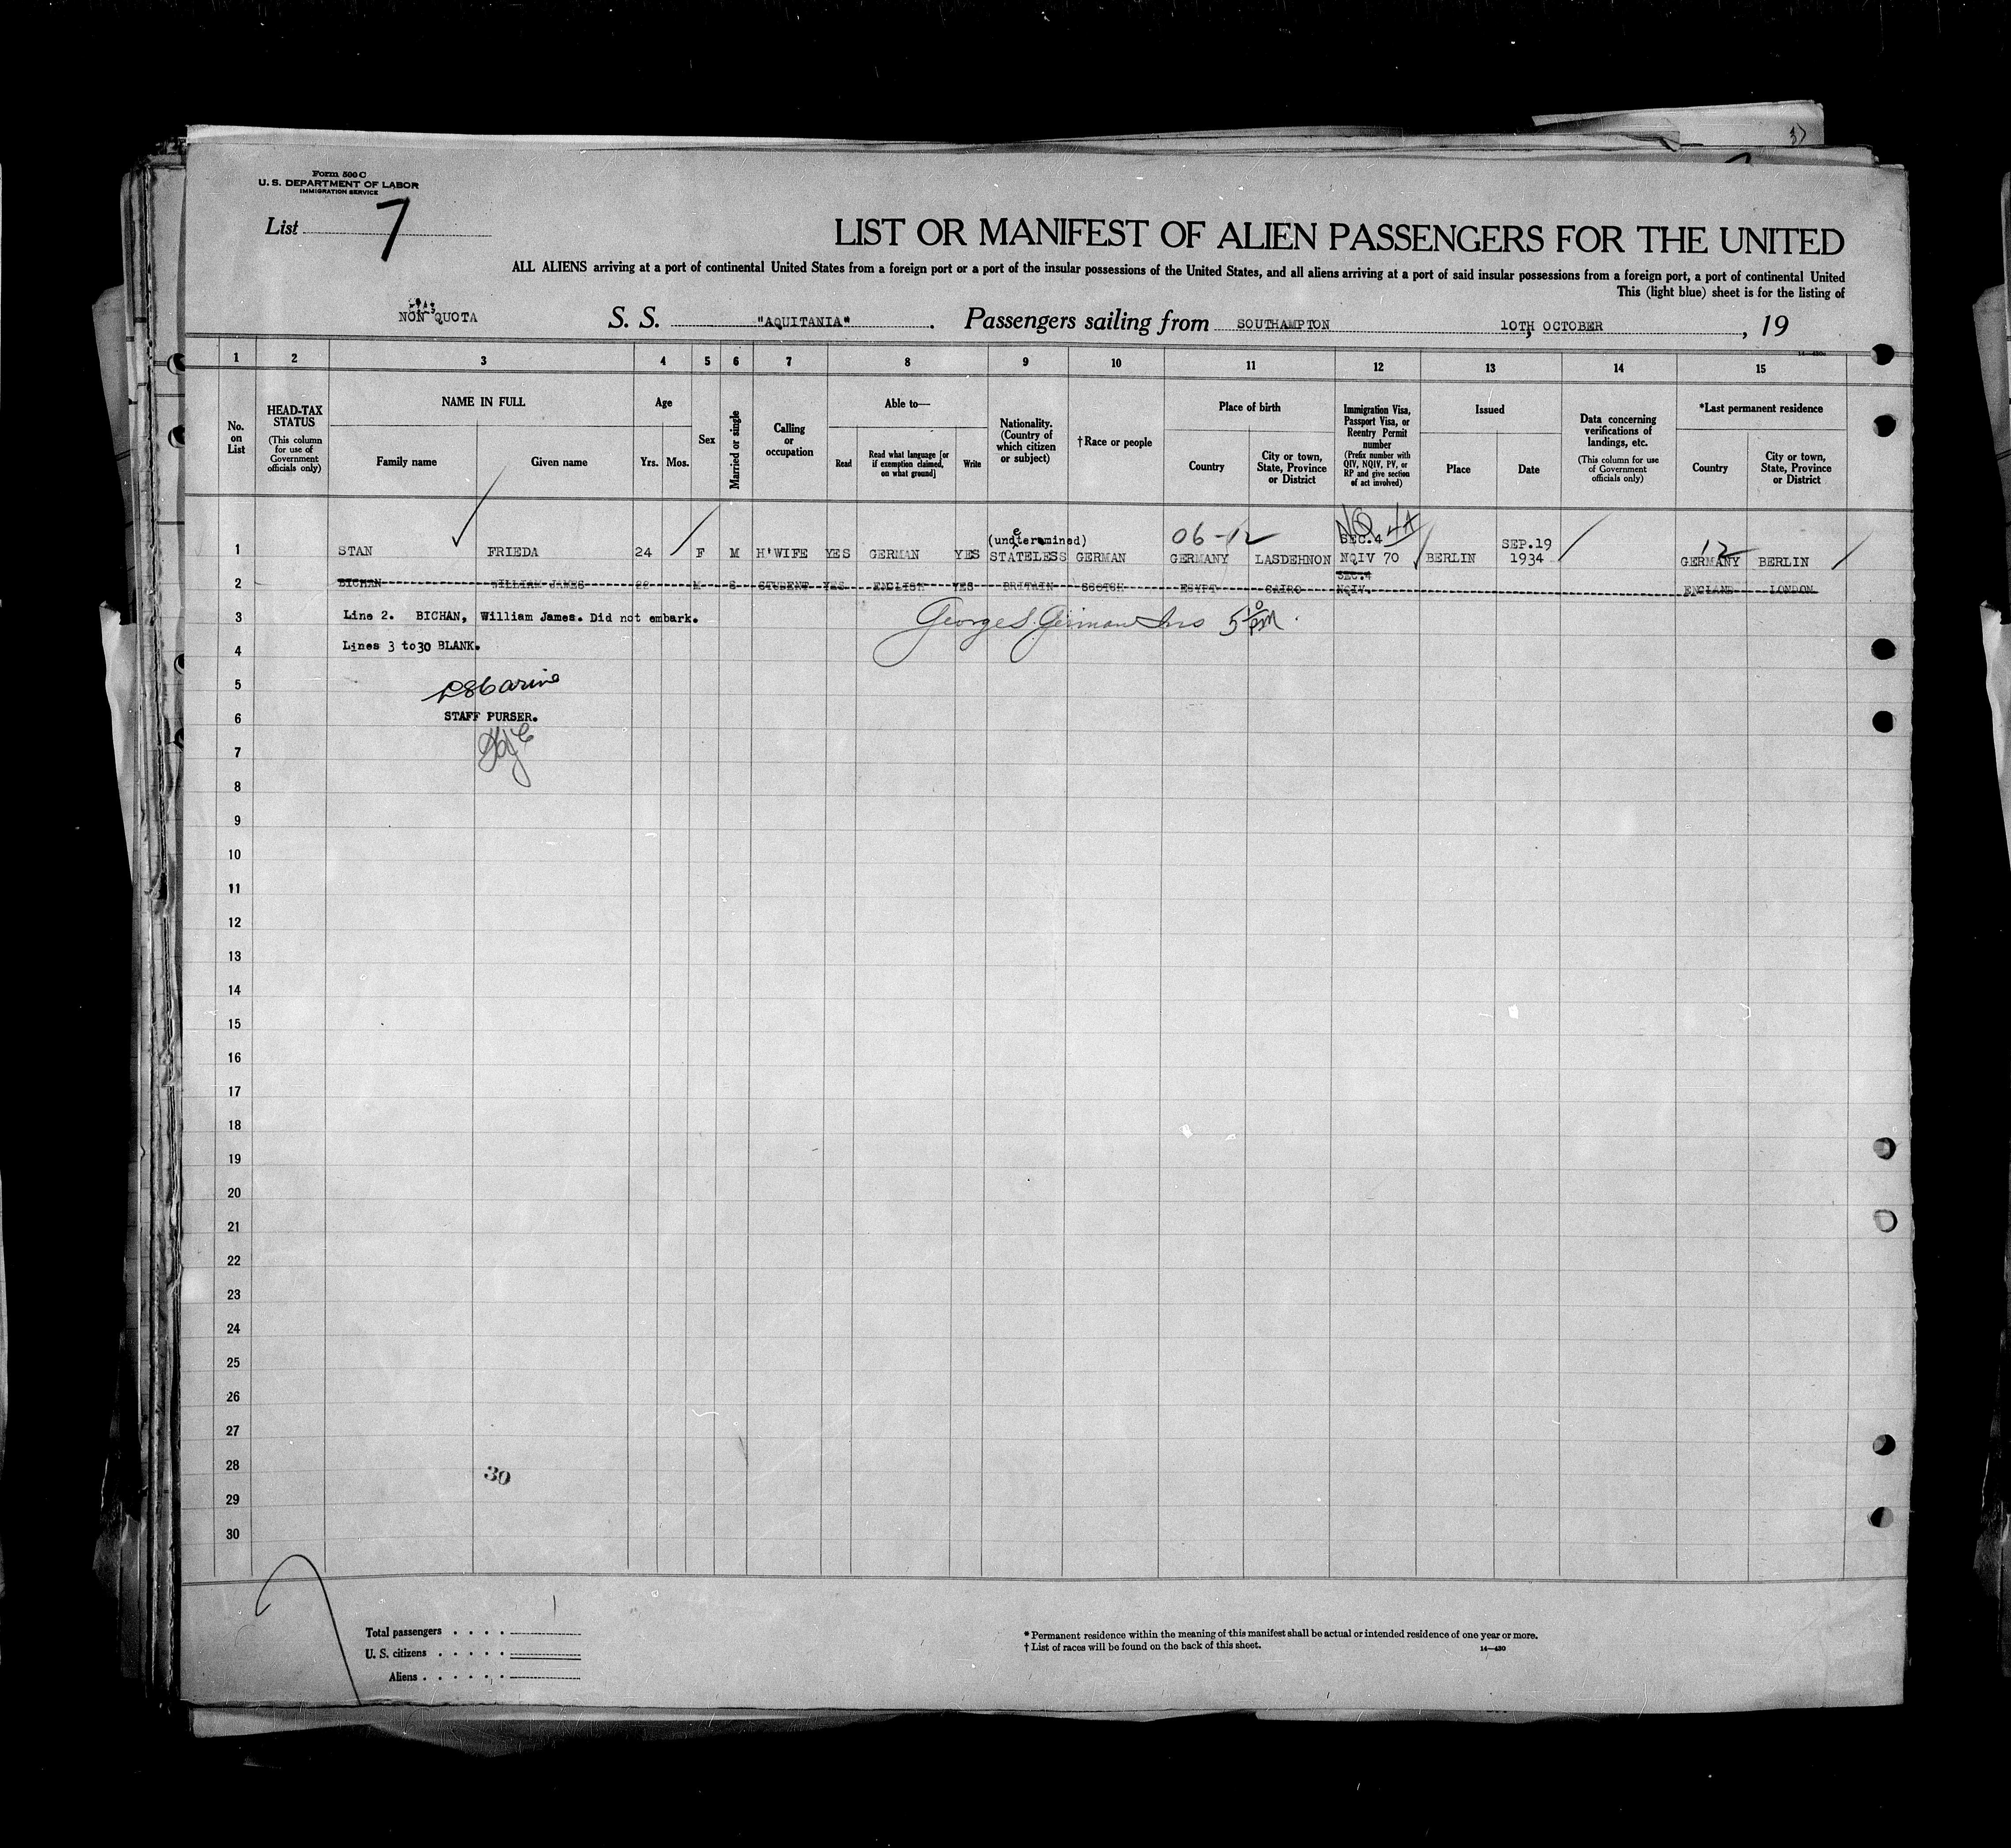 37
Form 500 C
U. S. DEPARTMENT OF LABOR
IMMIGRATION SERVICE
List 7
LIST OR MANIFEST OF ALIEN PASSENGERS FOR THE UNITED
ALL ALIENS arriving at a port of continental United States from a foreign port or a port of the insular possessions of the United States, and all aliens arriving at a port of said insular possessions from a foreign port, a port of continental United
This (light blue) sheet is for the listing of
NON QUOTA S. S. "AQUITANIA". Passengers sailing from SOUTHAMPTON 10TH, OCTOBER, 19
14—430
1 2 3 4 5 6 7 8 9 10 11 12 13 14 15
No. on List
HEAD-TAX STATUS (This column for use of Government officials only)
NAME IN FULL Family name Given name
Age Yrs. Mos.
Sex
Married or single
Calling or occupation
Able to— Read Read what language [or if exemption claimed, on what ground] Write
Nationality. (Country of which citizen or subject)
†Race or people
Place of birth Country City or town, State, Province or District
Immigration Visa, Passport Visa, or Reentry Permit number (Prefix number with QIV, NQIV, PV, or RP and give section of act involved)
Issued Place Date
Data concerning verifications of landings, etc. (This column for use of Government officials only)
*Last permanent residence Country City or town, State, Province or District
(undetermined) 06-12 NQ 4A SEC.4 SEP.19 12
1 STAN FRIEDA 24 F M H'WIFE YES GERMAN YES STATELESS GERMAN GERMANY LASDEHNON NQIV 70 BERLIN 1934 GERMANY BERLIN
SEC.4
2 BICHAN WILLIAM JAMES 22 M S STUDENT YES ENGLISH YES BRITAIN SCOTCH EGYPT CAIRO NQIV. ENGLAND LONDON
3 Line 2. BICHAN, William James. Did not embark. George S. German Ins 5 10 PM
4 Lines 3 to 30 BLANK.
5
6 STAFF PURSER.
7
8
9
10
11
12
13
14
15
16
17
18
19
20
21
22
23
24
25
26
27
28 30
29
30
Total passengers . . . . 1
U. S. citizens . . . . .
Aliens . . . . . .
* Permanent residence within the meaning of this manifest shall be actual or intended residence of one year or more.
† List of races will be found on the back of this sheet. 14—430